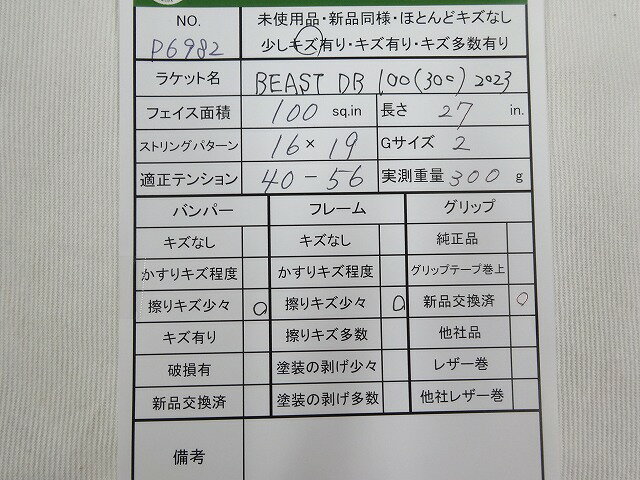 NO. 未使用品・新品同様・ほとんどキズなし
P6982 少しキズ有り・キズ有り・キズ多数有り
ラケット名 BEAST DB 100(300) 2023
フェイス面積 100 sq.in 長さ 27 in.
ストリングパターン 16×19 Gサイズ 2
適正テンション 40-56 実測重量 300 g
バンパー フレーム グリップ
キズなし キズなし 純正品
かすりキズ程度 かすりキズ程度 グリップテープ巻上
擦りキズ少々 ○ 擦りキズ少々 ○ 新品交換済 ○
キズ有り 擦りキズ多数 他社品
破損有 塗装の剥げ少々 レザー巻
新品交換済 塗装の剥げ多数 他社レザー巻
備考